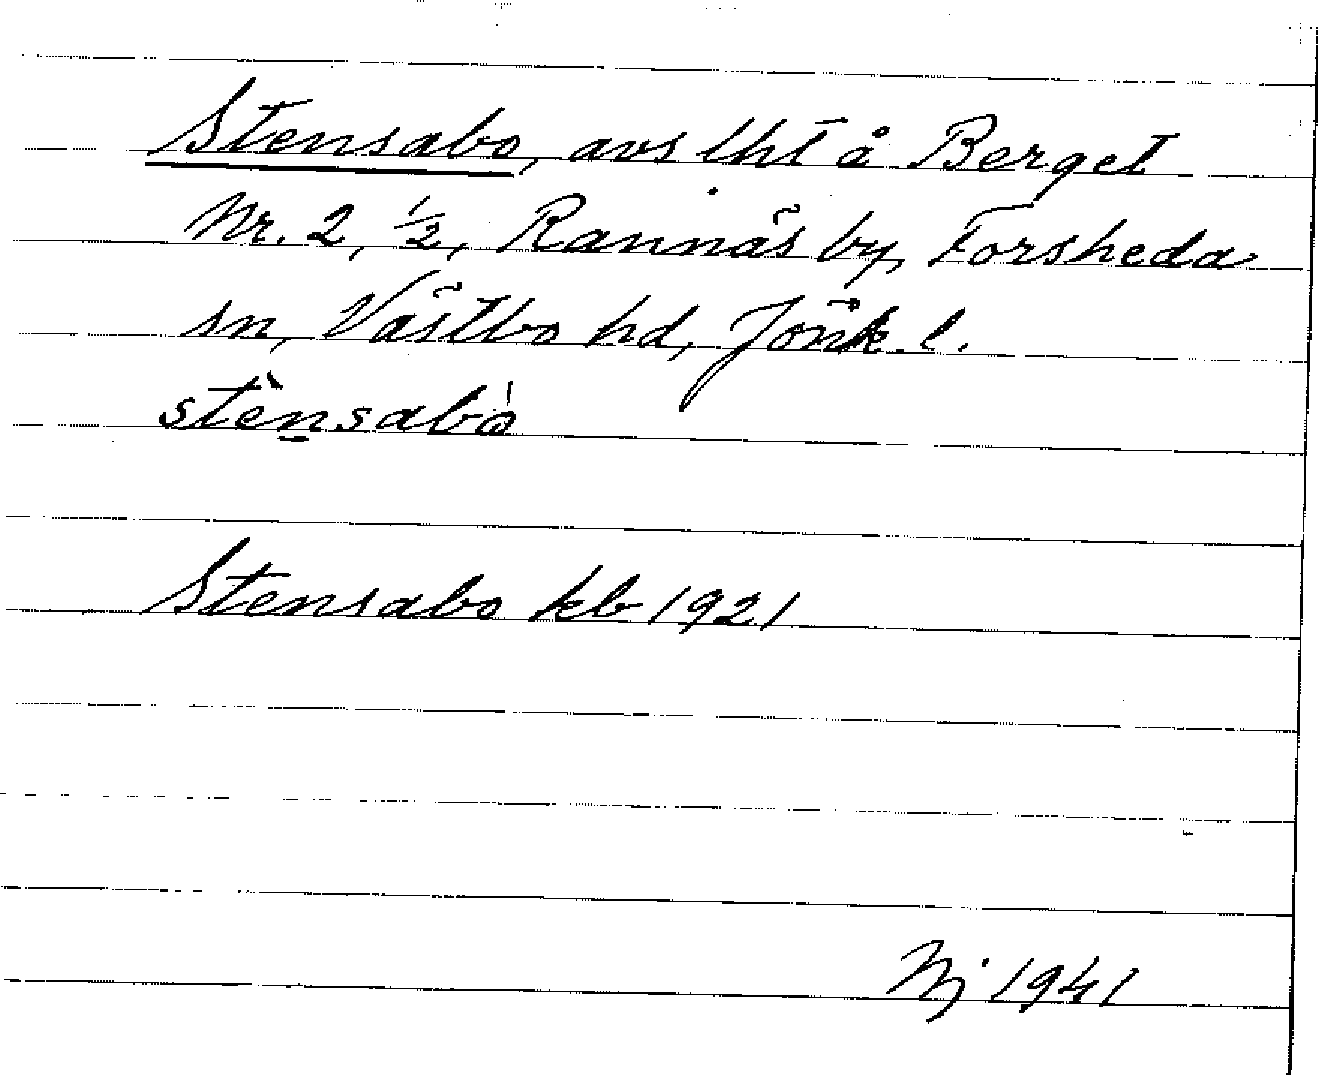 Stensabo, avs lht å Berget
Nr. 2, ½, Rannäs by, Forsheda
sn, Västbo hd, Jönk. l.
stènsabò
Stensabo kb 1921
Nj 1941